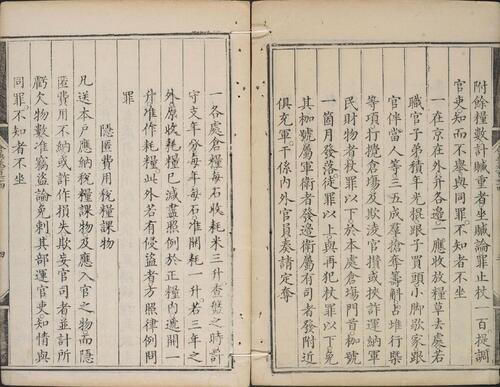 附餘糧數計贓重者坐贓論罪止杖一百提調
官吏知而不舉與同罪不知者不坐
一在京在外并各邊一應收放糧草去處若
職官子弟積年光棍跟子買頭小脚歌家跟
官伴當人等三五成羣搶奪籌斛占堆行槩
等項打攪倉塲及欺淩官攢或挾詐運納軍
民財物者杖罪以下於本處倉塲門首枷號
一箇月發落徒罪以上與再犯杖罪以下免
其枷號屬軍衛者發邊衛屬有司者發附近
俱充軍干係內外官員奏請定奪
一各處倉糧每石收耗米三升查盤之時計
守支年分每年每石准開耗一升若三年之
外原收耗糧已減盡照例於正糧內遞開一
升准作耗糧此外若有侵盜者方照律例問
罪
隱匿費用稅糧課物
凡送本戶應納稅糧課物及應入官之物而隱
匿費用不納或詐作損失欺妄官司者並計所
虧欠物數准竊盜論免刺其部運官吏知情與
同罪不知者不坐